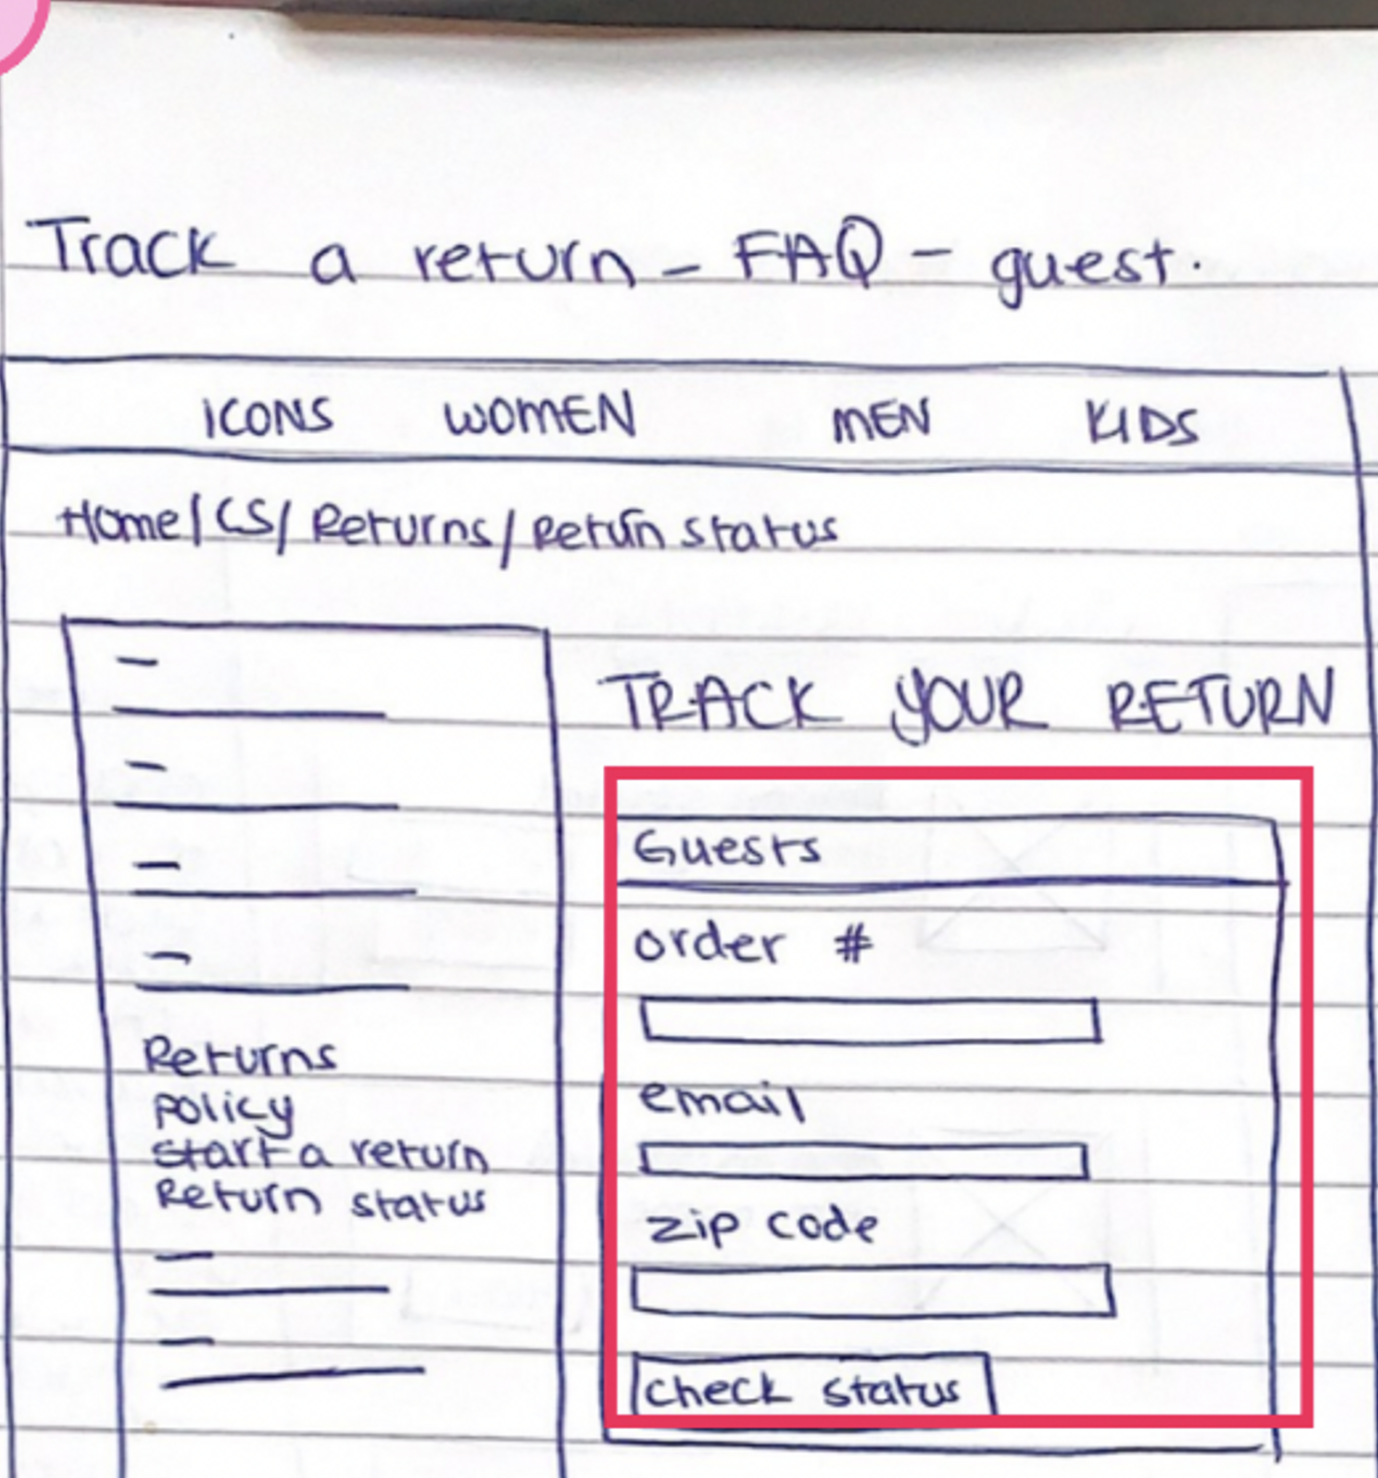 Track a return - FAQ - guest.
ICONS WOMEN MEN KIDS
Home / CS / Returns / Return status
TRACK YOUR RETURN
Guests
order #
email
zip code
check status
Returns
policy
start a return
Return status